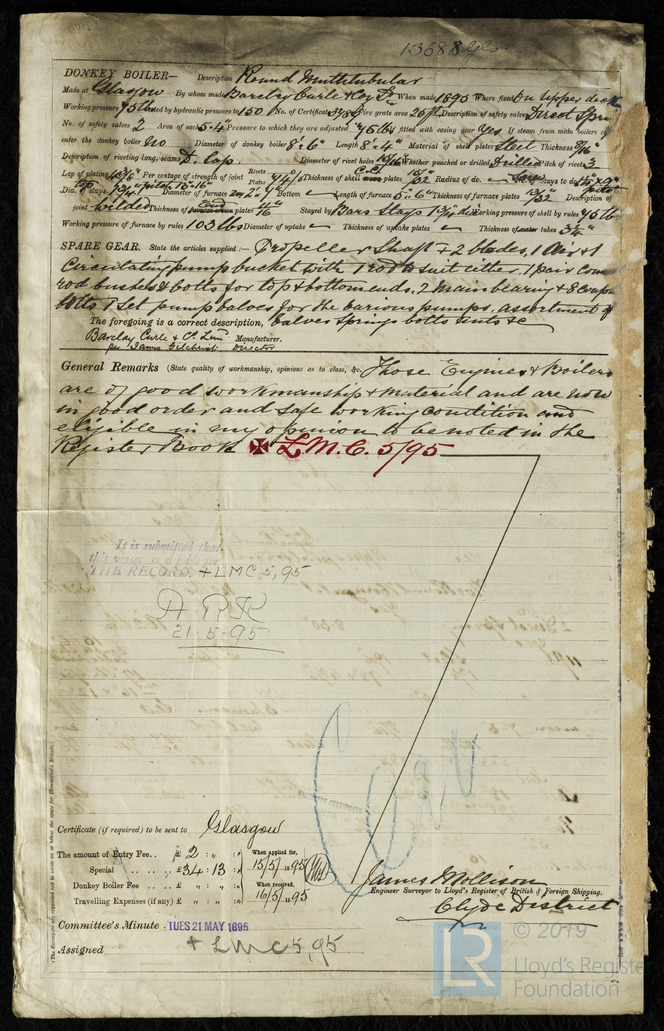 13688 Gls
DONKEY BOILER— Description Round Multitubular
Made at Glasgow By whom made Barclay Curle & Coy Ld When made 1895 Where fixed On upper deck
Working pressure 75 lb tested by hydraulic pressure to 150 No. of Certificate Fire grate area 26 ft Description of safety valves Direct Spring
No. of safety valves 2 Area of each 5.4" Pressure to which they are adjusted 75 lbs If fitted with easing gear Yes If steam from main boilers can
enter the donkey boiler No Diameter of donkey boiler 8'.6" Length 8'.4" Material of shell plates Steel Thickness
Description of riveting long. seams D. Lap. Diameter of rivet holes Whether punched or drilled Drilled Pitch of rivets 3
Lap of plating Per centage of strength of joint Rivets Plates Thickness of shell plates Radius of do. No. of Stays to do.
Dia. of stays Diameter of furnace Top Bottom Length of furnace 5'.6" Thickness of furnace plates Description of
joint Welded Thickness of plates Stayed by Bars Stays Working pressure of shell by rules 75 lb
Working pressure of furnace by rules 103 lbs Diameter of uptake Thickness of uptake plates Thickness of tubes
SPARE GEAR. State the articles supplied:— Propeller Shaft & 2 blades, 1 Air & 1
Circulating pump bucket with 1 rod to suit either, 1 pair Conn
rod bushes & bolts for top & bottom ends, 2 main bearing & 8 coup
bolts 1 set pump valves for the various pumps, assortment of
The foregoing is a correct description, valves springs bolts nuts &c
Barclay Curle & Co. Lim Manufacturer.
per James Gilchrist Director
General Remarks (State quality of workmanship, opinions as to class, &c. These Engines & Boilers
are of good workmanship & material and are now
in good order and safe working condition and
eligible in my opinion to be noted in the
Register Book ✠ L.M.C. 5/95
It is submitted that
this vessel is eligible for
THE RECORD. + LMC 5,95
21-5-95
MACHINERY CERTIFICATE
Certificate (if required) to be sent to Glasgow
The amount of Entry Fee . . £ 2 : " : " When applied for,
Special . . . . £ 34 : 13 : " 15/5/1895
Donkey Boiler Fee . . £ " : " : " When received,
Travelling Expenses (if any) £ " : " : " 16/5/1895
James Mollison
Engineer Surveyor to Lloyd's Register of British & Foreign Shipping.
Clyde District
Committee's Minute TUES 21 MAY 1895
Assigned + LMC 5,95
(The Surveyors are requested not to write on or below the space for Committee's Minute.)
LR
© 2019
Lloyd's Register
Foundation